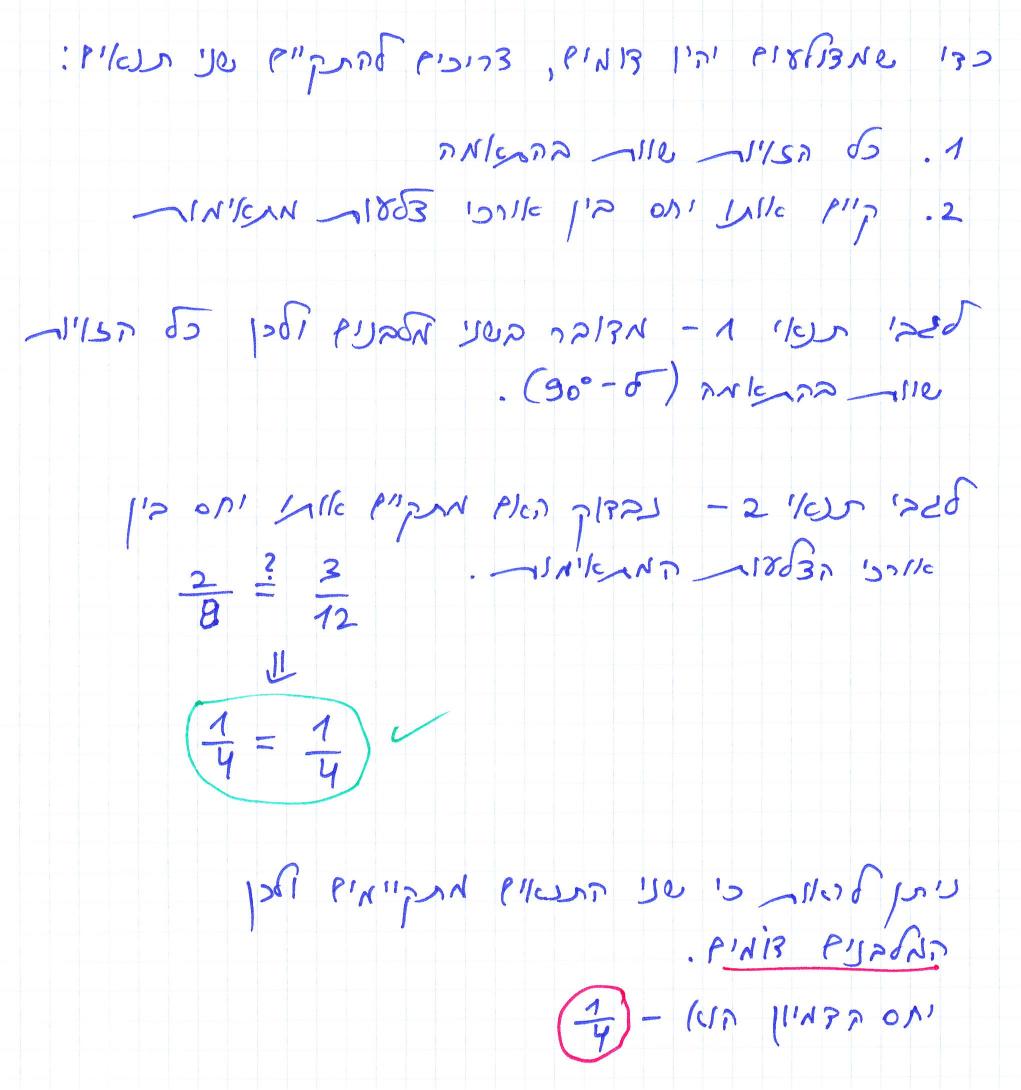 כדי שמצולעים יהיו דומים, צריכים להתקיים שני תנאים:
1. כל הזויות שוות בהתאמה
2. קיים אותו יחס בין אורכי צלעות מתאימות
לגבי תנאי 1 - מדובר בשני מלבנים ולכן כל הזויות
שוות בהתאמה (ל-90°).
לגבי תנאי 2 - נבדוק האם מתקיים אותו יחס בין
אורכי הצלעות המתאימות.
2/8 ≟ 3/12
⇓
1/4 = 1/4 ✓
ניתן לראות כי שני התנאים מתקיימים ולכן
המלבנים דומים.
יחס הדמיון הוא - 1/4